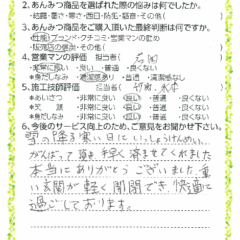 2.あんみつ商品を選ばれた際の悩みは何でしたか。
・結露・暑さ・寒さ・西日・防犯・騒音・その他(
3.あんみつ商品をご購入頂いた最終判断は何ですか。
・性能・ブランド・クチコミ・営業マンの勧め
・販売店の信頼・その他(
4.営業マンの評価 担当者(
・非常に良い ・良い ・普通 ・良くない
*身だしなみ ・清潔感あり ・普通 ・清潔感なし
5.施工技師評価 担当者(
*あいさつ ・非常に良い ・良い ・普通 ・良くない
・非常に良い ・良い ・普通 ・良くない
*身だしなみ ・非常に良い ・良い ・普通 ・良くない
6.今後のサービス向上のため、ご意見をお聞かせ下さい。
雪の降る寒い日にいっしょうけんめい
がんばって頂き、手早く済ませてくれました
本当にありがとうございました。重い
玄関が軽く開閉でき、快適に
過ごしております。